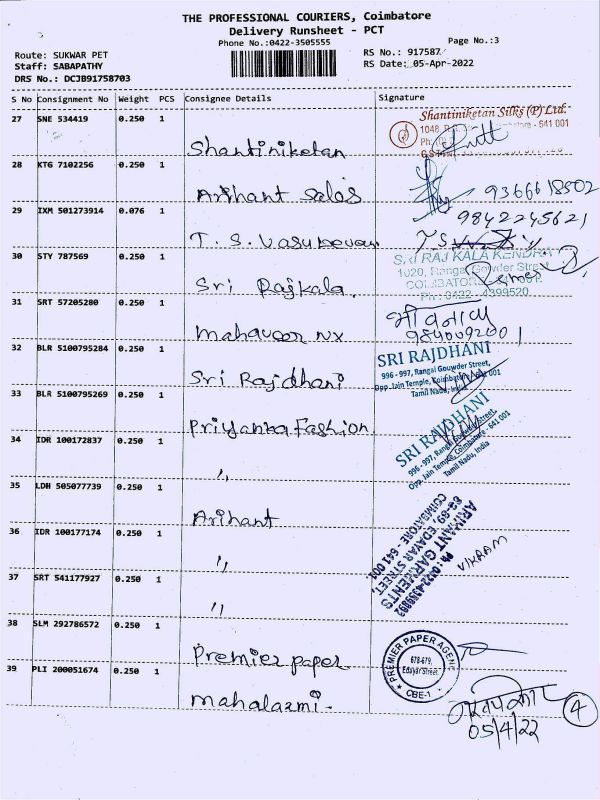 THE PROFESSIONAL COURIERS, Coimbatore
Delivery Runsheet - PCT
Phone No.:0422-3505555
Page No.:3
Route: SUKWAR PET
RS No.: 917587
Staff: SABAPATHY
RS Date: 05-Apr-2022
DRS No.: DCJB91758703
S No Consignment No Weight PCS Consignee Details Signature
27 SNE 534419 0.250 1
Shantiniketan Silks (P) Ltd.
1048, - 641 001
Shantiniketan
28 KTG 7102256 0.250 1
Arihant Sales
9366618502
29 IXM 501273914 0.076 1
9842245621
T. S. Vasudevan
30 STY 787569 0.250 1
SRI RAJ KALA KENDRA
1020, Rangai Gowder Street
COIMBATORE - 641 001.
Ph : 0422 - 4399520
Sri Rajkala.
31 SRT 57205280 0.250 1
Mahaveer NX
9840092001
32 BLR 5100795284 0.250 1
SRI RAJDHANI
996 - 997, Rangai Gouwder Street,
Opp. Jain Temple, Coimbatore - 641 001
Tamil Nadu, India
Sri Rajdhani
33 BLR 5100795269 0.250 1
Priyanka Fashion
SRI RAJDHANI
996 - 997, Rangai Gouwder Street,
Opp. Jain Temple, Coimbatore - 641 001
Tamil Nadu, India
34 IDR 100172837 0.250 1
"
35 LDH 505077739 0.250 1
Arihant
ARIHANT GARMENTS
82-89, EDAYAR STREET,
COIMBATORE - 641 001.
VIKRAM
36 IDR 100177174 0.250 1
"
37 SRT 541177927 0.250 1
"
38 SLM 292786572 0.250 1
Premier paper
PREMIER PAPER AGENC
678-679,
Edayar Street
CBE-1
39 PLI 200051674 0.250 1
Mahalaxmi -
05/4/22
4